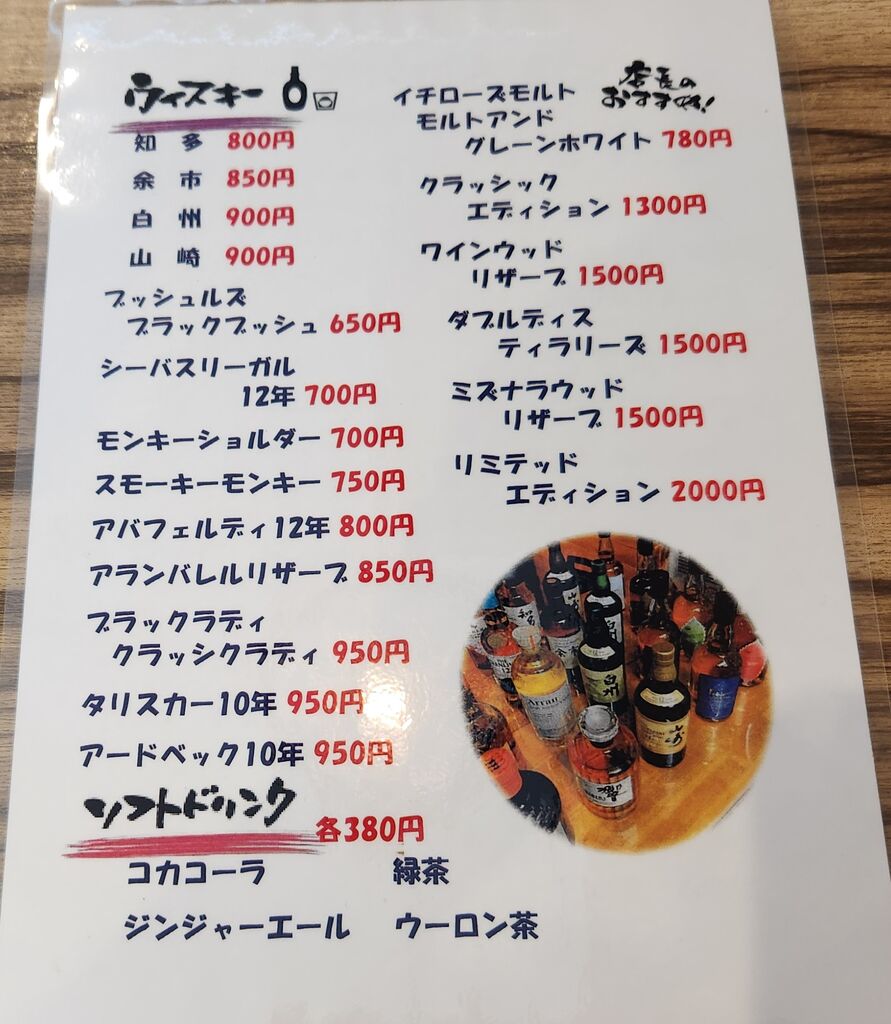 ウィスキー
知多 800円
余市 850円
白州 900円
山崎 900円
ブッシュルズ
ブラックブッシュ 650円
シーバスリーガル
12年 700円
モンキーショルダー 700円
スモーキーモンキー 750円
アバフェルディ12年 800円
アランバレルリザーブ 850円
ブラックラディ
クラッシクラディ 950円
タリスカー10年 950円
アードベック10年 950円
ソフトドリンク 各380円
コカコーラ 緑茶
ジンジャーエール ウーロン茶
店長の
おすすめ!
イチローズモルト
モルトアンド
グレーンホワイト 780円
クラッシック
エディション 1300円
ワインウッド
リザーブ 1500円
ダブルディス
ティラリーズ 1500円
ミズナラウッド
リザーブ 1500円
リミテッド
エディション 2000円
知多
白州
Arran
山崎
響